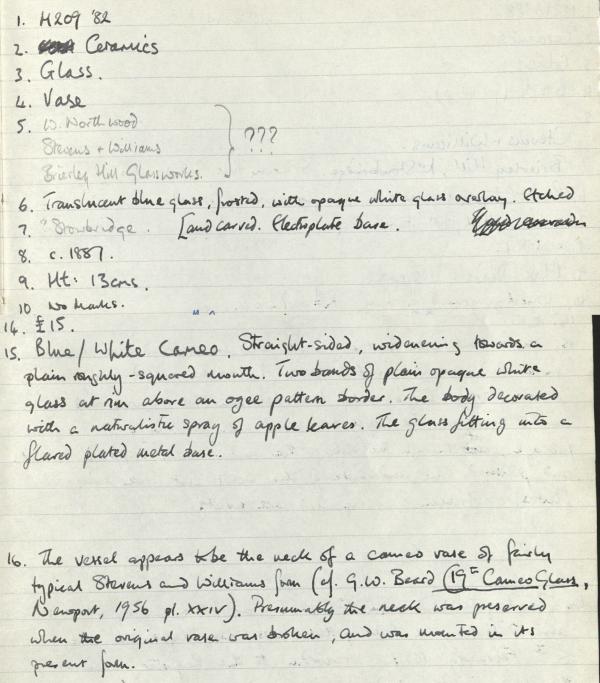 1. H209 '82
2. Ceramics
3. Glass.
4. Vase
5. W. Northwood
Stevens + Williams
Brierley Hill Glassworks.
???
6. Translucent blue glass, frosted, with opaque white glass overlay. Etched
7. ? Stourbridge. [and carved. Electroplate base.
8. c. 1887.
9. Ht: 13cms.
10 No Marks.
14. £15.
15. Blue/White Cameo. Straight-sided, widening towards a
plain roughly-squared mouth. Two bands of plain opaque white
glass at rim above an ogee pattern border. The body decorated
with a naturalistic spray of apple leaves. The glass fitting into a
flared plated metal base.
16. The vessel appears to be the neck of a cameo vase of fairly
typical Stevens and Williams form (cf. G.W. Beard (19th Cameo Glass,
Newport, 1956 pl. XXIV). Presumably the neck was preserved
when the original vase was broken, and was mounted in its
present form.